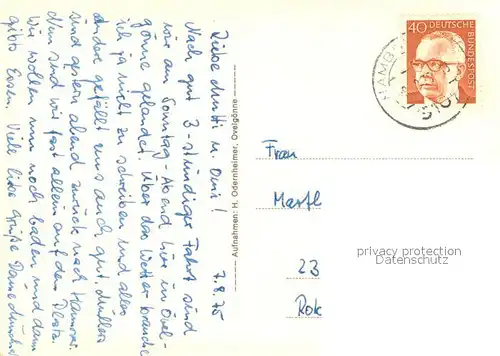 7.8.75
Liebe Mutti u. Omi!
Nach gut 3-stündiger Fahrt sind
wir am Sonntag-Abend hier in Ovel-
gönne gelandet. Über das Wetter brauche
ich ja nicht zu schreiben und alles
andere gefällt uns auch gut. Müllers
sind gestern abend zurück nach Hannover.
Nun sind wir fast allein auf dem Platz.
Wir wollen nun noch baden und dann
gibts Essen. Viele liebe Grüße
Aufnahmen: H. Odernheimer, Ovelgönne
40
DEUTSCHE
BUNDESPOST
Frau
23
privacy protection
Datenschutz